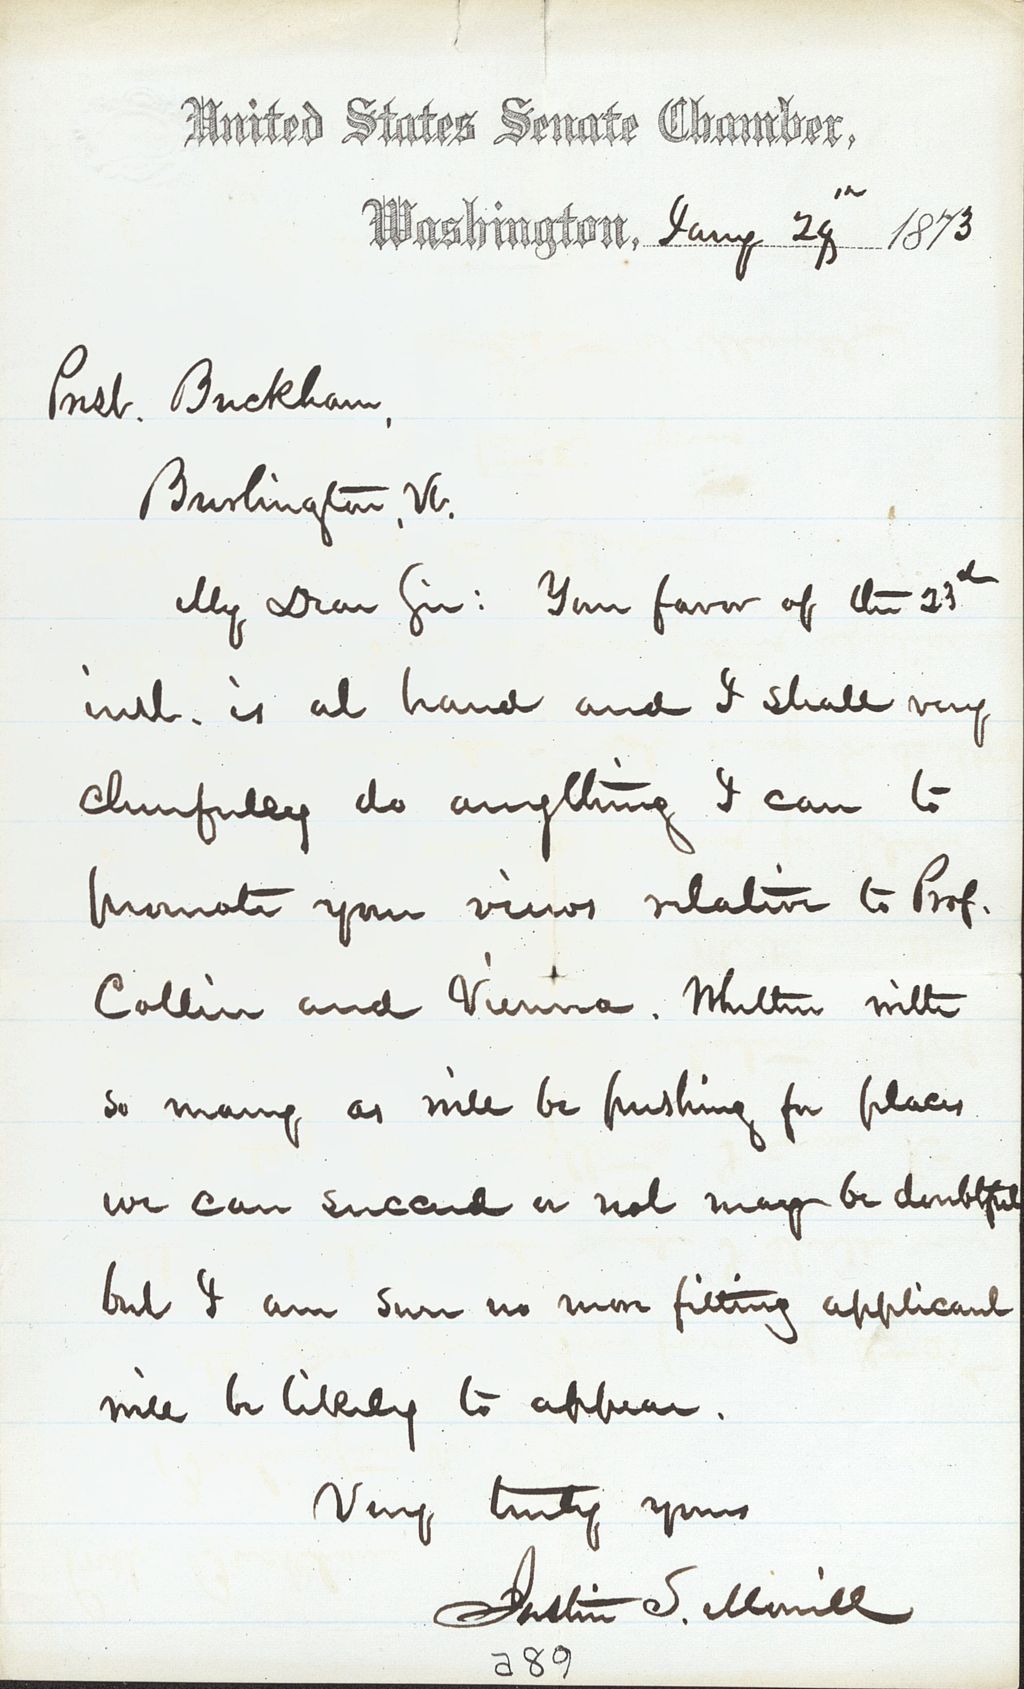 United States Senate Chamber,
Washington, Jany 29th 1873
Prest. Buckham,
Burlington, Vt.
My Dear Sir: Your favor of the 23d
inst. is at hand and I shall very
cheerfully do anything I can to
promote your views relative to Prof.
Collin and Vienna. Whether with
so many as will be pushing for places
we can succeed or not may be doubtful
but I am sure no more fitting applicant
will be likely to appear.
Very truly yours
Justin S. Morrill
289